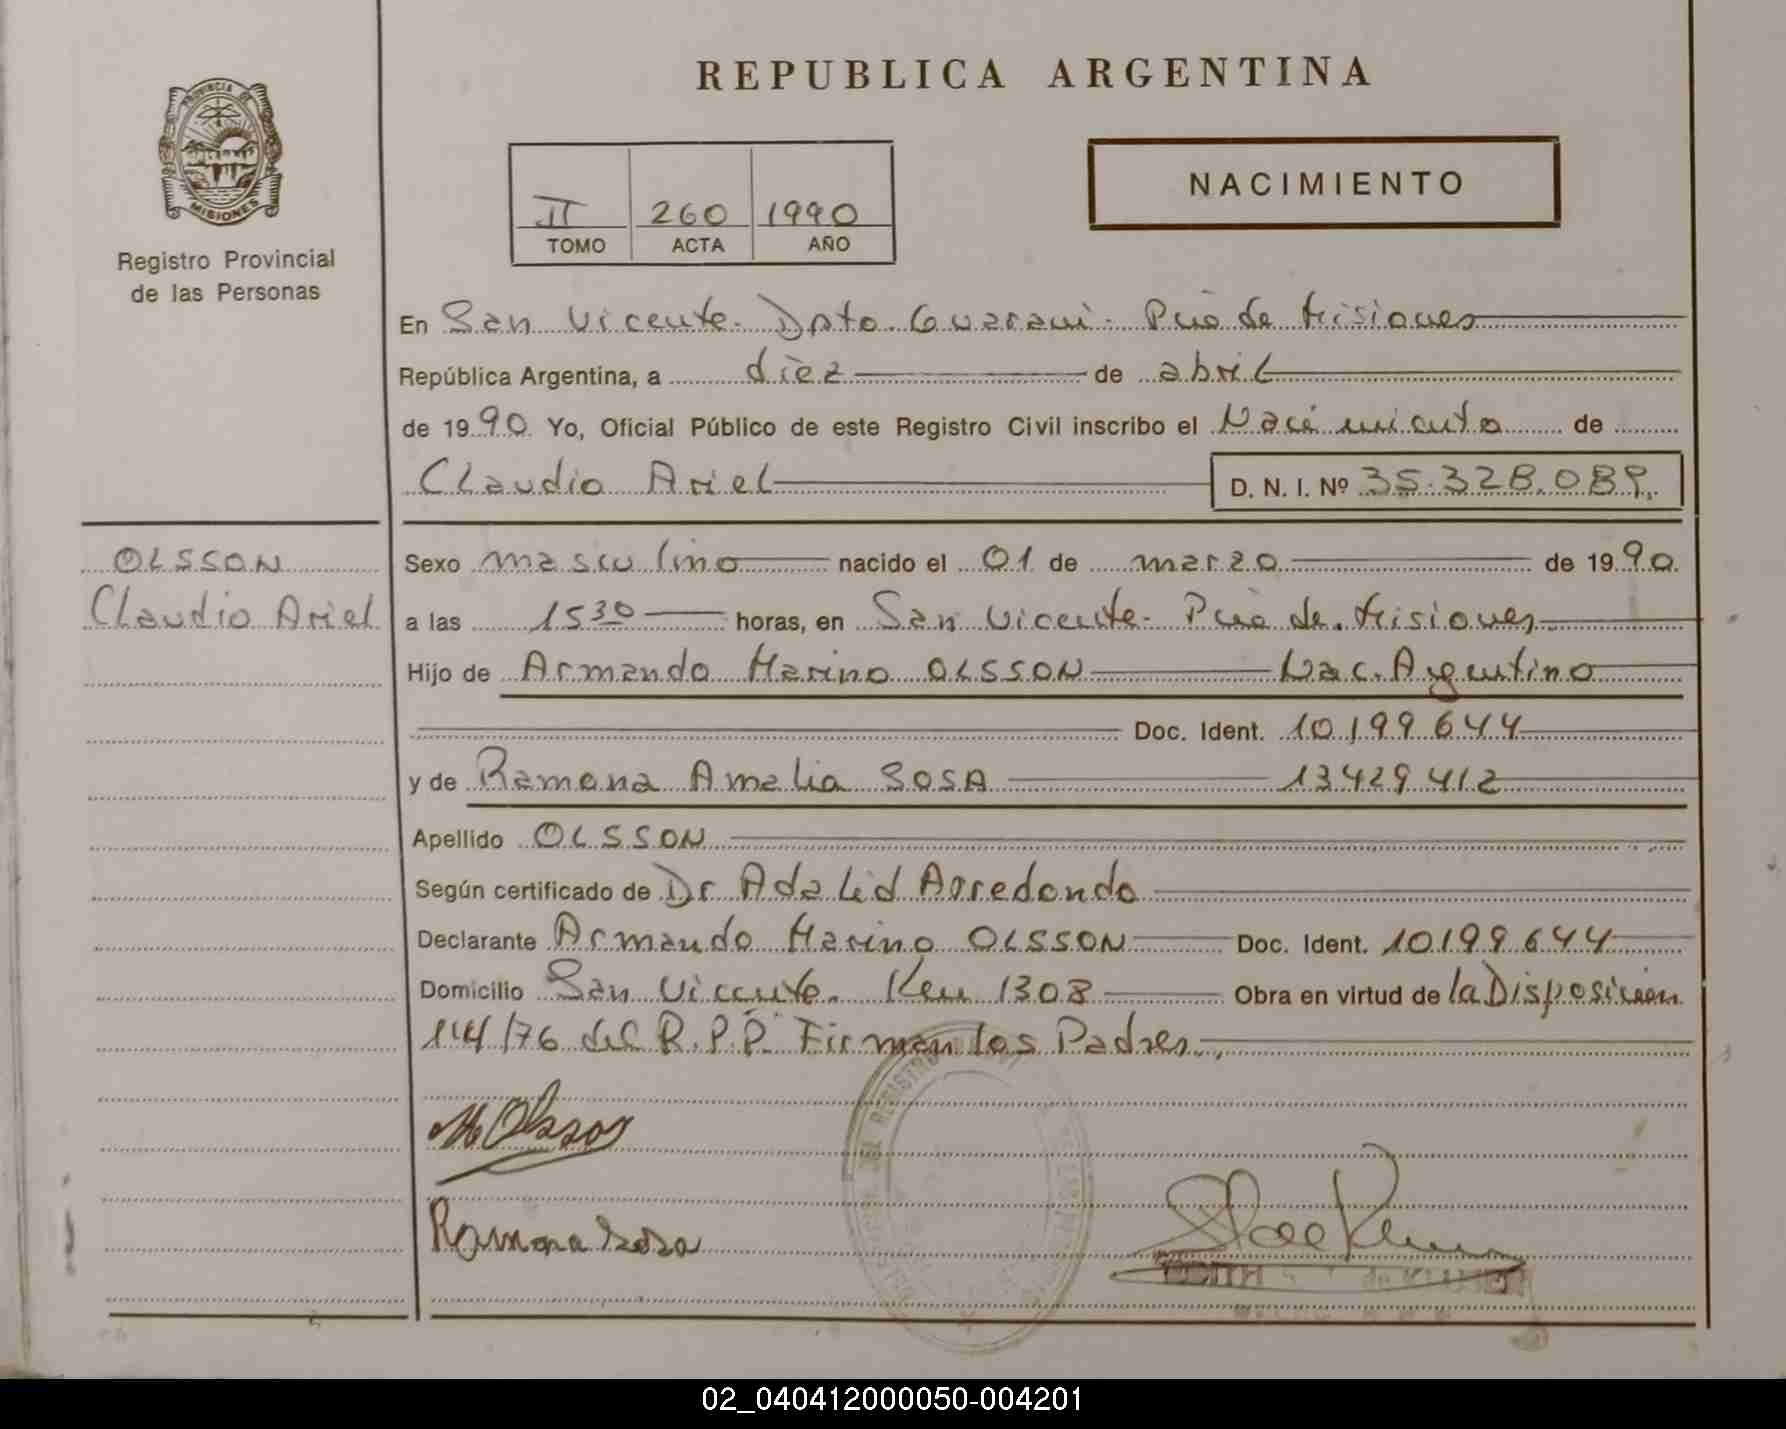 REPUBLICA ARGENTINA
PROVINCIA DE
MISIONES
Registro Provincial
de las Personas
II 260 1990
TOMO ACTA AÑO
NACIMIENTO
En San Vicente. Dpto. Guaraní. Pcia de Misiones
República Argentina, a diez de abril
de 1990 Yo, Oficial Público de este Registro Civil inscribo el Nacimiento de
Claudio Ariel D. N. I. Nº 35.328.089.
OLSSON
Claudio Ariel
Sexo masculino nacido el 01 de marzo de 1990
a las 15 30 horas, en San Vicente. Pcia de Misiones
Hijo de Armando Marino OLSSON Nac. Argentino
Doc. Ident. 10199644
y de Ramona Amelia SOSA 13429412
Apellido OLSSON
Según certificado de Dr Adalid Arredondo
Declarante Armando Marino OLSSON Doc. Ident. 10199644
Domicilio San Vicente. Km 1308 Obra en virtud de la Disposición
114/76 del R.P.P. Firman los Padres.
M Olsson
Ramona Sosa
EDITH de
02_040412000050-004201